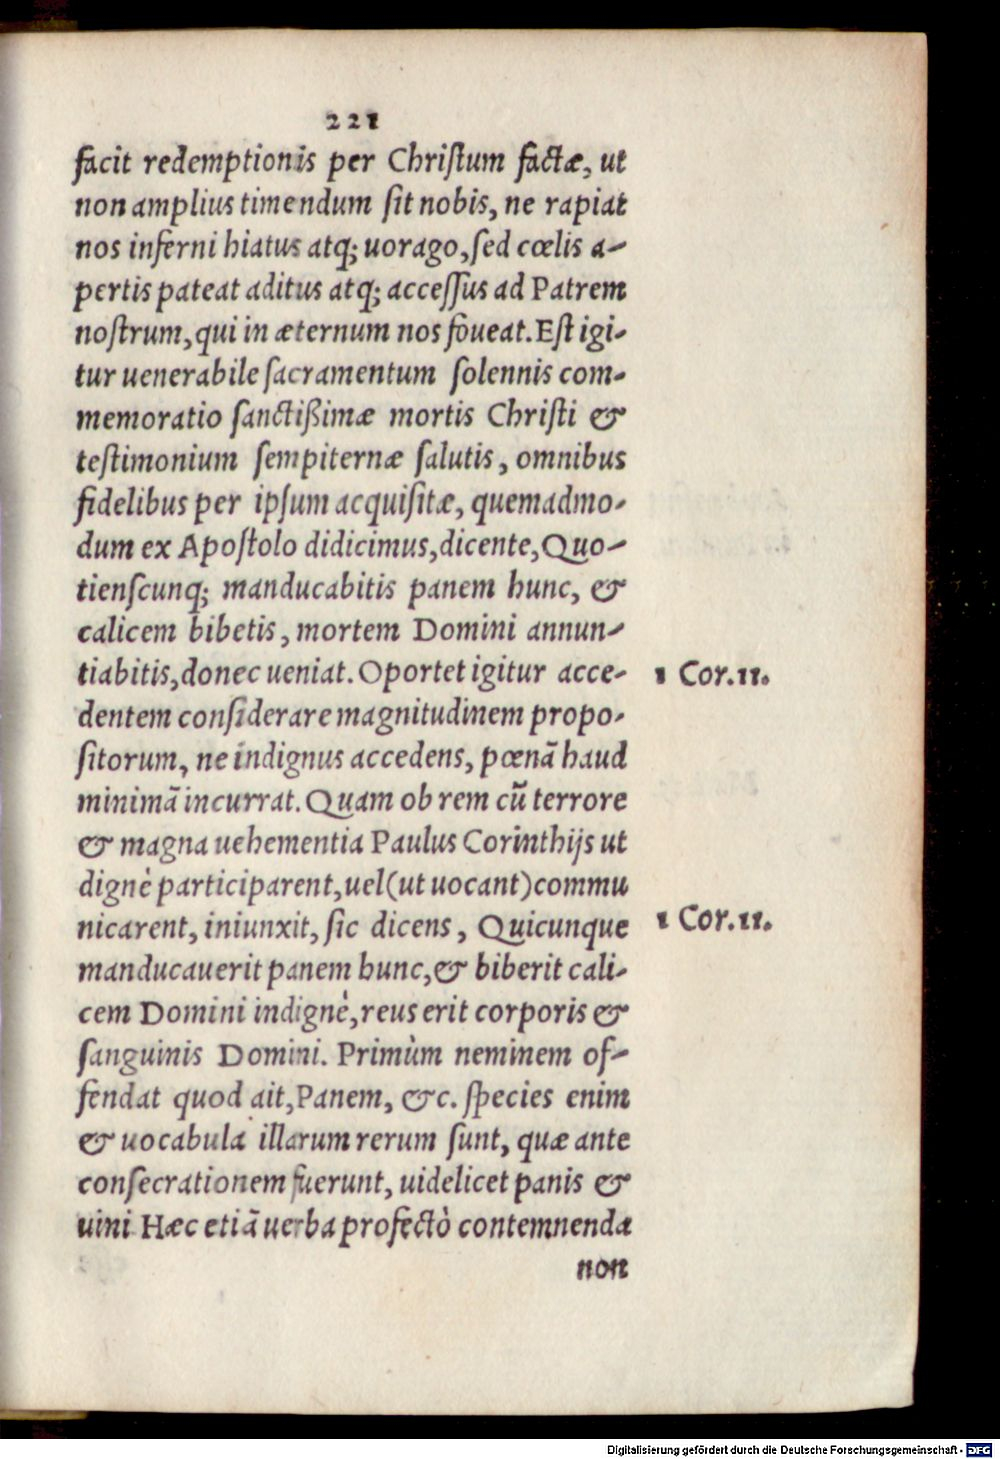 221
facit redemptionis per Christum factæ, ut
non amplius timendum ſit nobis, ne rapiat
nos inferni hiatus atq; uorago, ſed cœlis a-
pertis pateat aditus atq; acceſſus ad Patrem
noſtrum, qui in æternum nos foueat. Eſt igi-
tur uenerabile ſacramentum ſolennis com-
memoratio ſanctißimæ mortis Chriſti &
teſtimonium ſempiternæ ſalutis, omnibus
fidelibus per ipſum acquiſitæ, quemadmo-
dum ex Apoſtolo didicimus, dicente, Quo-
tienſcunq; manducabitis panem hunc, &
calicem bibetis, mortem Domini annun-
tiabitis, donec ueniat. Oportet igitur acce-
1 Cor. 11.
dentem conſiderare magnitudinem propo-
ſitorum, ne indignus accedens, pœnā haud
minimā incurrat. Quam ob rem cū terrore
& magna uehementia Paulus Corinthijs ut
dignè participarent, uel (ut uocant) commu
nicarent, iniunxit, ſic dicens, Quicunque
1 Cor. 11.
manducauerit panem hunc, & biberit cali-
cem Domini indignè, reus erit corporis &
ſanguinis Domini. Primùm neminem of-
fendat quod ait, Panem, &c. ſpecies enim
& uocabula illarum rerum ſunt, quæ ante
conſecrationem fuerunt, uidelicet panis &
uini Hæc etiā uerba profectò contemnenda
non
Digitalisierung gefördert durch die Deutsche Forschungsgemeinschaft - DFG